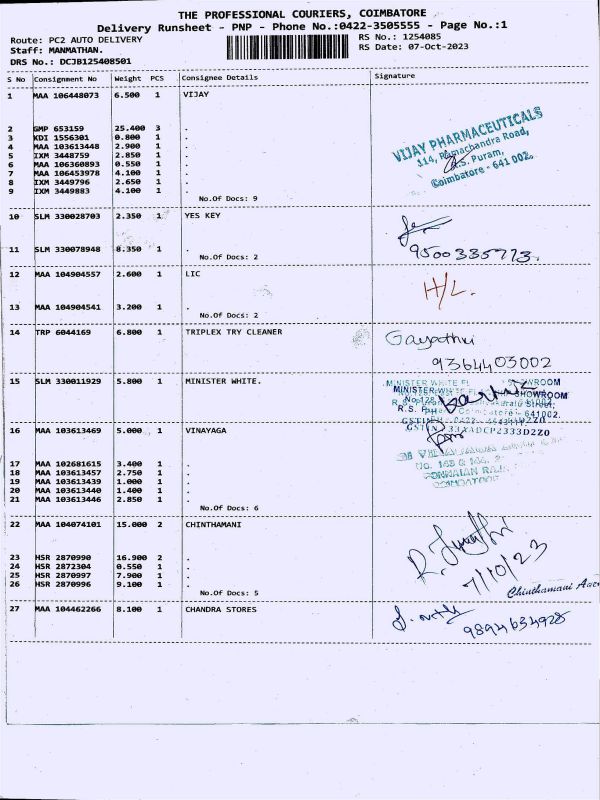 THE PROFESSIONAL COURIERS, COIMBATORE
Delivery Runsheet - PNP - Phone No.:0422-3505555 - Page No.:1
Route: PC2 AUTO DELIVERY
RS No.: 1254085
Staff: MANMATHAN.
RS Date: 07-Oct-2023
DRS No.: DCJB125408501
S No Consignment No Weight PCS Consignee Details Signature
1 MAA 106448073 6.500 1 VIJAY
2 GMP 653159 25.400 3 .
3 KDI 1556301 0.800 1 .
4 MAA 103613448 2.900 1 .
5 IXM 3448759 2.850 1 .
6 MAA 106360893 0.550 1 .
7 MAA 106453978 4.100 1 .
8 IXM 3449796 2.650 1 .
9 IXM 3449883 4.100 1 .
No.Of Docs: 9
VIJAY PHARMACEUTICALS
114, Ramachandra Road,
R.S. Puram,
Coimbatore - 641 002.
10 SLM 330028703 2.350 1 YES KEY
11 SLM 330078948 8.350 1 .
No.Of Docs: 2
9500335773.
12 MAA 104904557 2.600 1 LIC
H/L.
13 MAA 104904541 3.200 1 .
No.Of Docs: 2
14 TRP 6044169 6.800 1 TRIPLEX TRY CLEANER
Gayathri
9364403002
15 SLM 330011929 5.800 1 MINISTER WHITE.
MINISTER WHITE SHOWROOM
R.S. Puram Coimbatore - 641002.
16 MAA 103613469 5.000 1 VINAYAGA
17 MAA 102681615 3.400 1 .
18 MAA 103613457 2.750 1 .
19 MAA 103613439 1.000 1 .
20 MAA 103613440 1.400 1 .
21 MAA 103613446 2.850 1 .
No.Of Docs: 6
22 MAA 104074101 15.000 2 CHINTHAMANI
23 HSR 2870990 16.900 2 .
24 HSR 2872304 0.550 1 .
25 HSR 2870997 7.900 1 .
26 HSR 2870996 9.100 1 .
No.Of Docs: 5
7/10/23
Chinthamani
27 MAA 104462266 8.100 1 CHANDRA STORES
9894634928